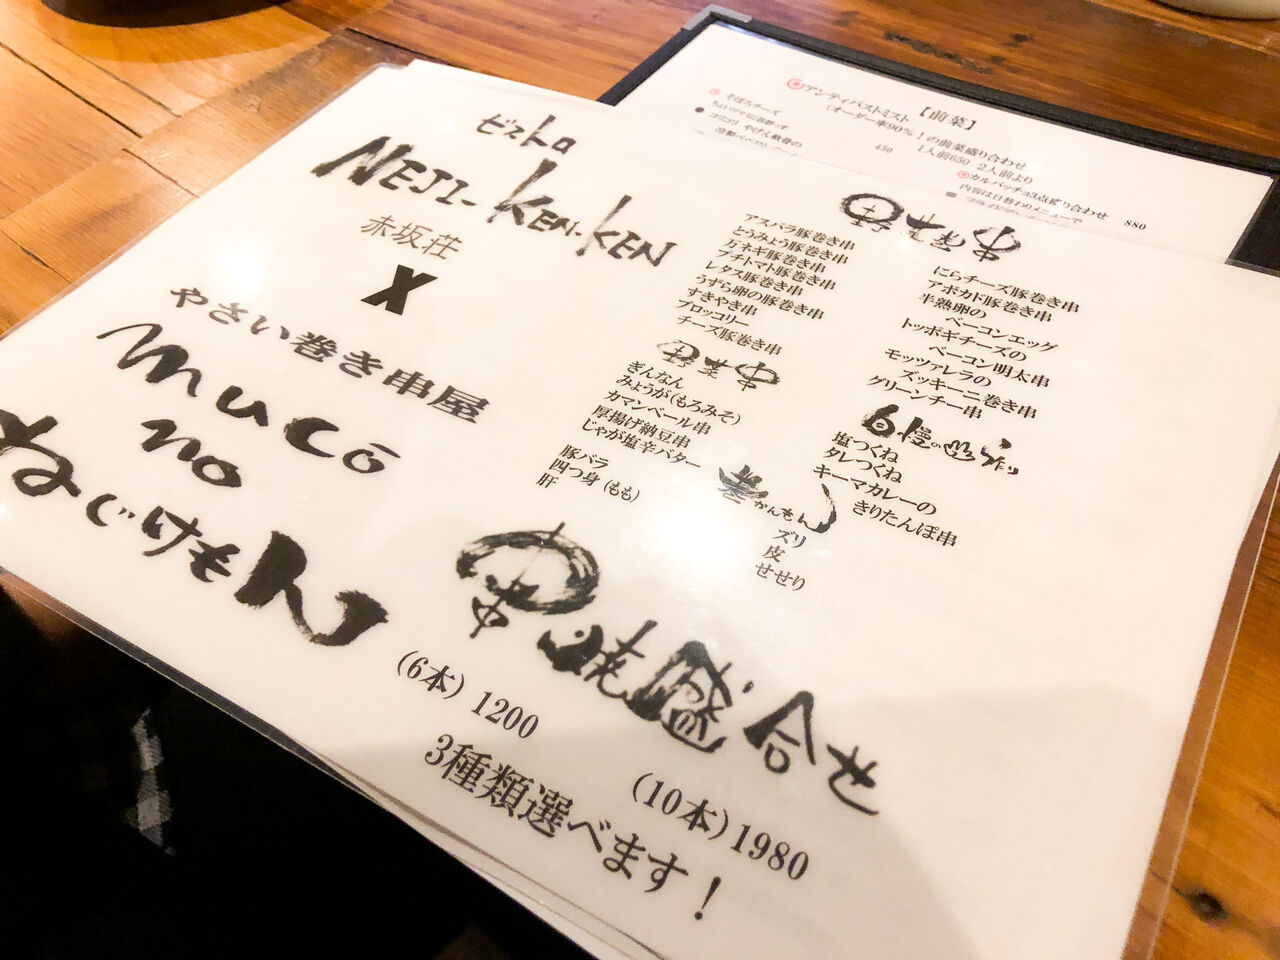 NEJI-KEN-KEN
赤坂荘
X
やさい巻き串屋
mucō
no
ねじけもん
野菜巻き串
アスパラ豚巻き串
とうみょう豚巻き串
万ネギ豚巻き串
プチトマト豚巻き串
レタス豚巻き串
うずら卵の豚巻き串
すきやき串
ブロッコリー
チーズ豚巻き串
にらチーズ豚巻き串
アボカド豚巻き串
半熟卵の
ベーコンエッグ
トッポギチーズの
ベーコン明太串
モッツァレラの
ズッキーニ巻き串
グリーンチー串
野菜串
ぎんなん
みょうが(もろみそ)
カマンベール串
厚揚げ納豆串
じゃが塩辛バター
豚バラ
四つ身(もも)
肝
自慢の
塩つくね
タレつくね
キーマカレーの
きりたんぽ串
ズリ
皮
せせり
串焼盛合せ
(6本) 1200
(10本) 1980
3種類選べます!
【前菜】
アンティパストミスト
(オーダー率90%!の前菜盛り合わせ
1人前650 2人前より
カルパッチョ3点盛り合わせ 880
内容は日替わりメニューで
そぼろチーズ
コリコリ やげん軟骨の
450